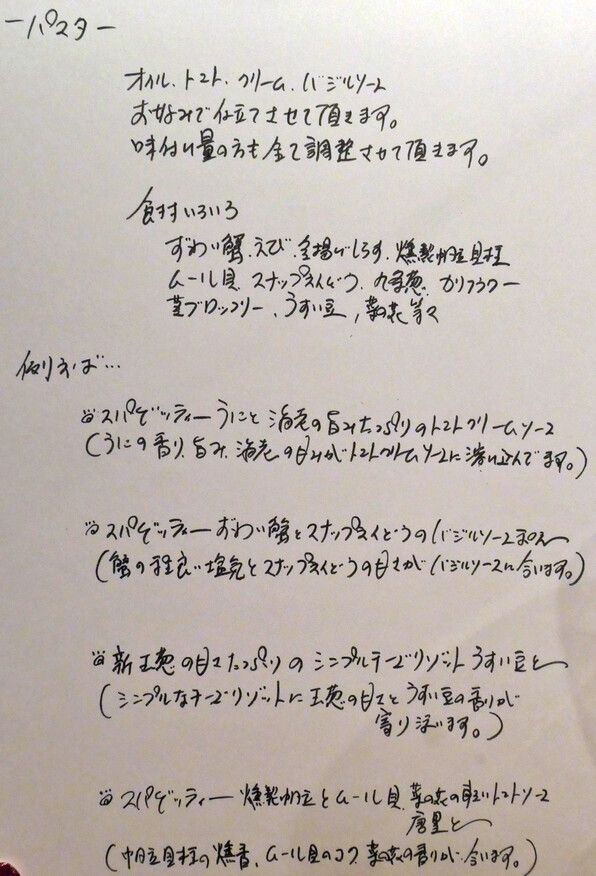 ーパスター
オイル、トマト、クリーム、バジルソース
お好みで仕立てさせて頂きます。
味付け、量の方も全て調整させて頂きます。
食材いろいろ
ずわい蟹、えび、釜揚げしらす、燻製帆立貝柱
ムール貝、スナップえんどう、九条葱、カリフラワー
茎ブロッコリー、うすい豆、菜の花 等々
例えば…
スパゲッティー うにと海老の旨みたっぷりのトマトクリームソース
(うにの香り、旨み、海老の甘みがトマトクリームソースに溶け込んでます。)
スパゲッティー ずわい蟹とスナップえんどうのバジルソースまぜ
(蟹の程良い塩気とスナップえんどうの甘さがバジルソースに合います。)
新玉葱の甘さたっぷりのシンプルチーズリゾット うすい豆と
(シンプルなチーズリゾットに玉葱の甘さとうすい豆の香りが
寄り添います。)
スパゲッティー 燻製帆立とムール貝、菜の花の軽いトマトソース
唐墨と
(帆立貝柱の燻香、ムール貝のコク、菜の花の香りが合います。)